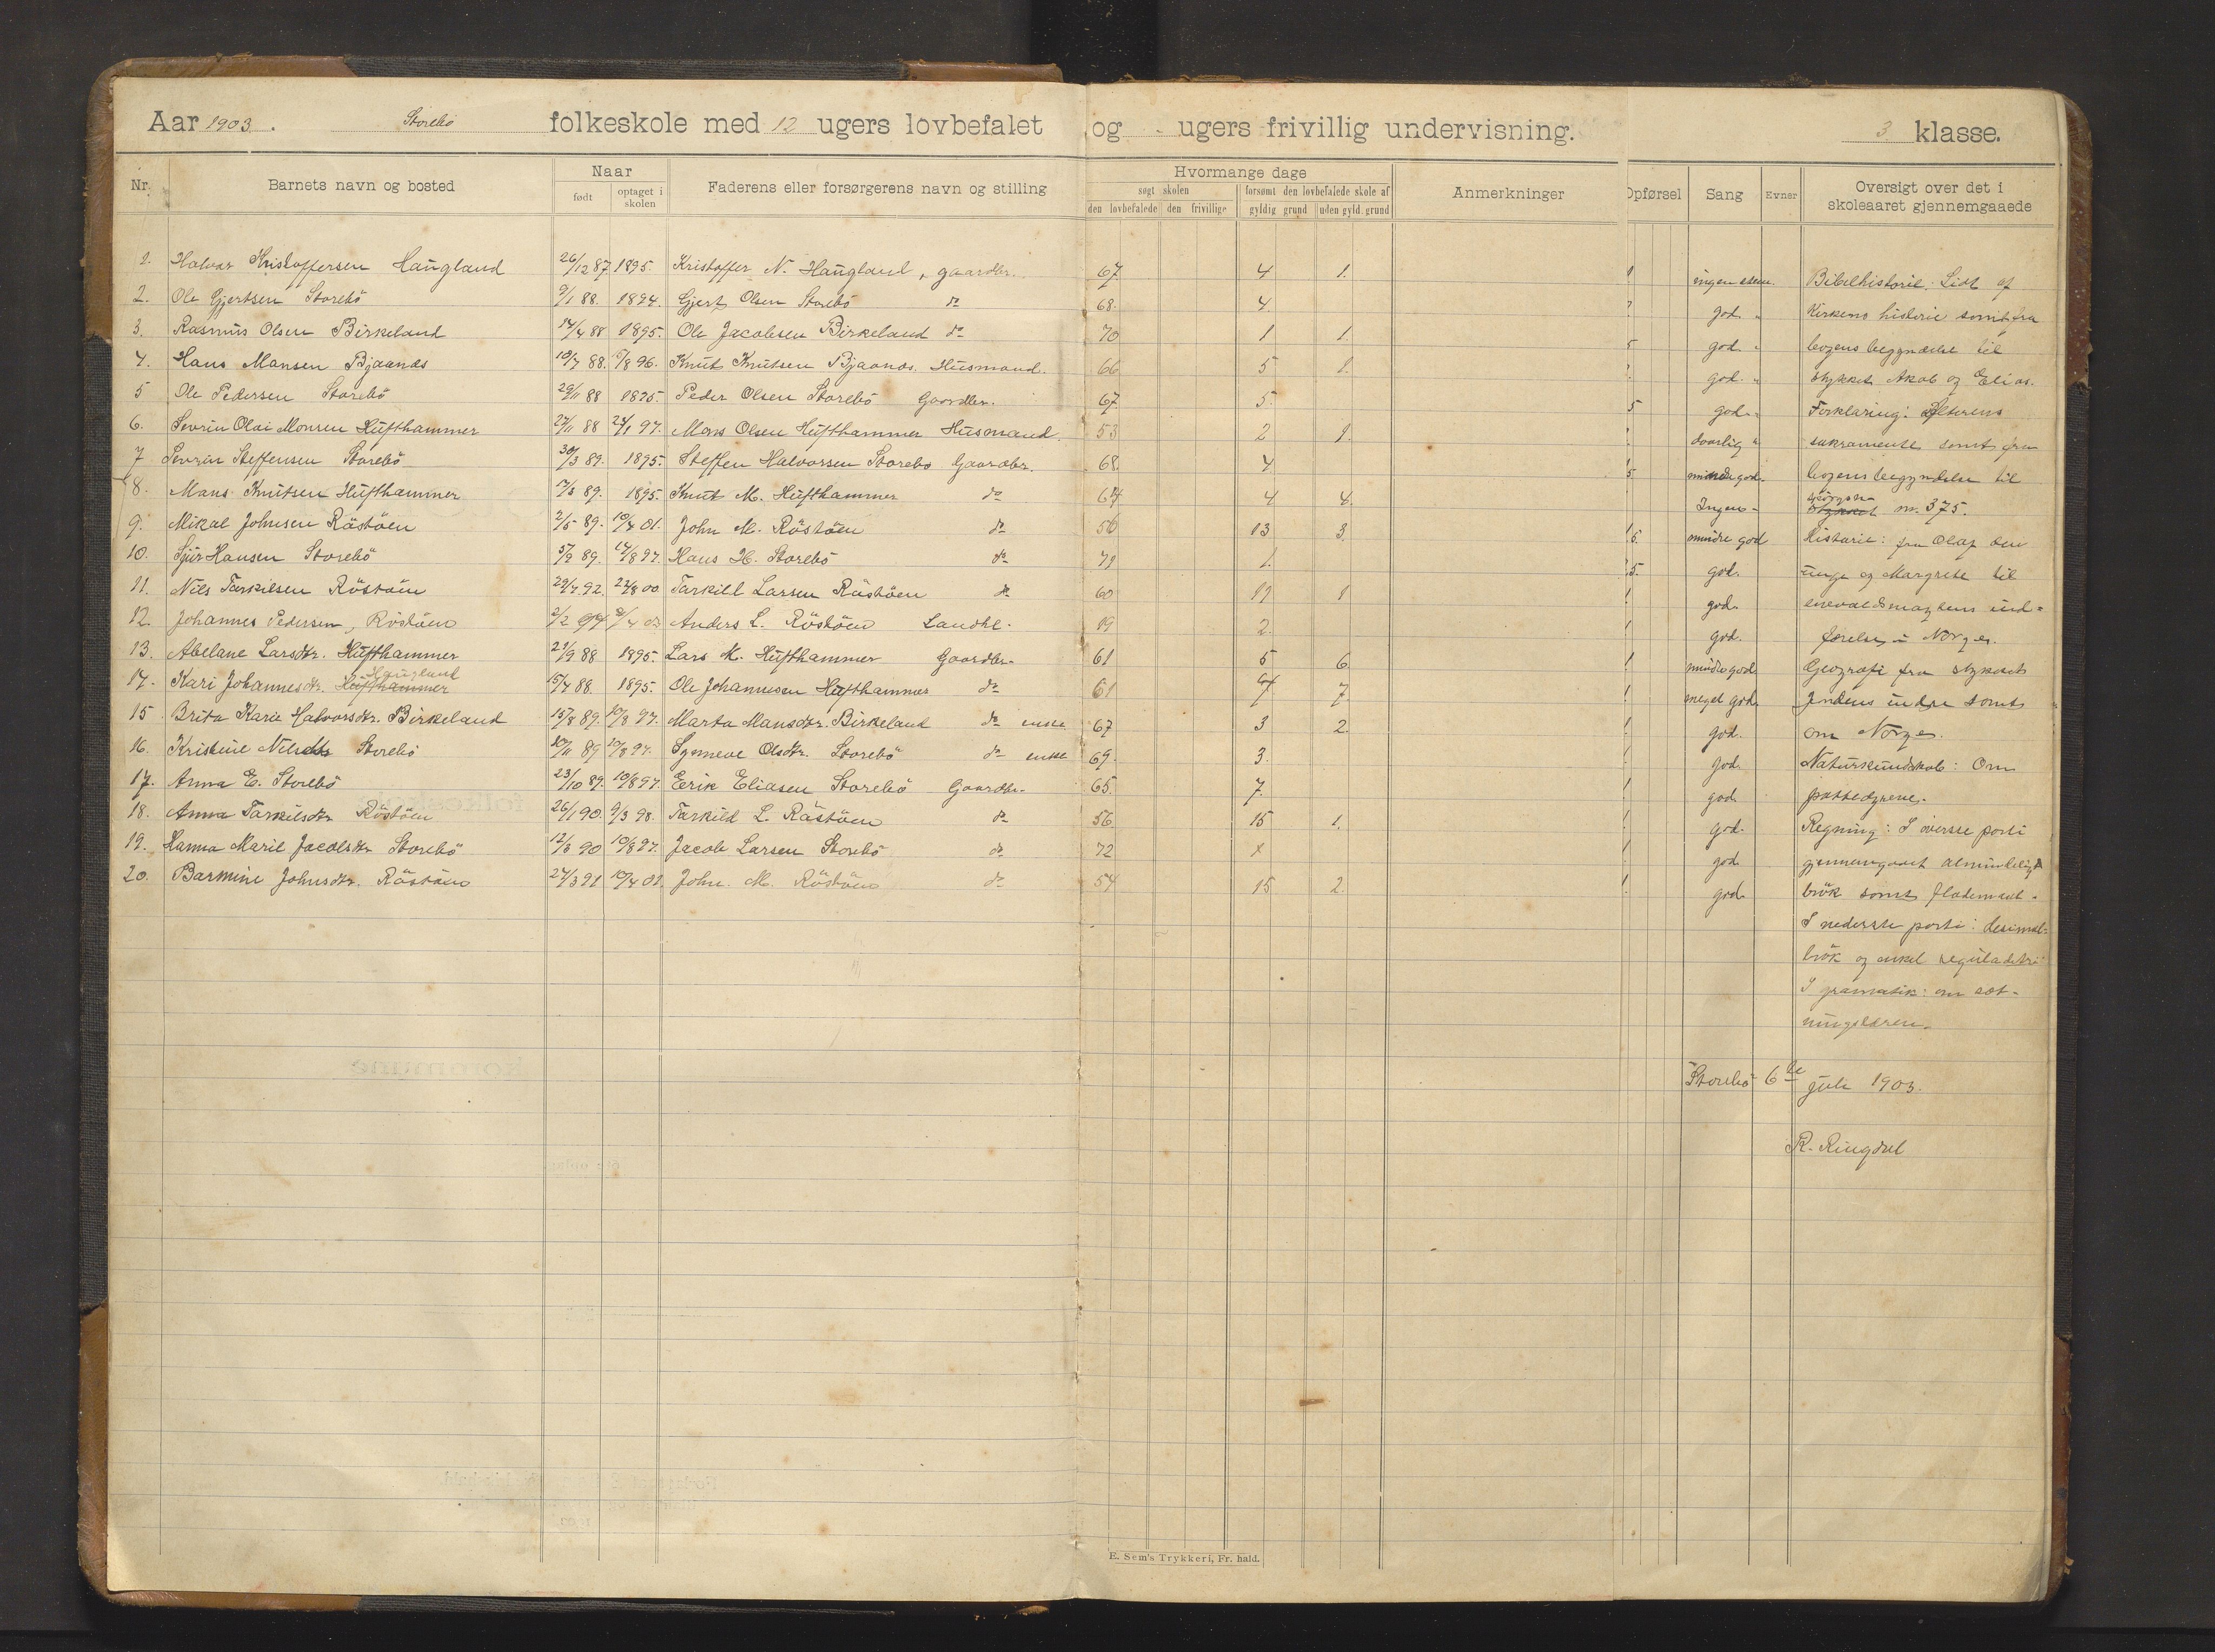 Aar 1903. Storebö folkeskole med 12 ugers lovbefalet og - ugers frivillig undervisning. 3 klasse.
Nr. Barnets navn og bosted Naar født optaget i skolen Faderens eller forsørgerens navn og stilling Hvormange dage søgt skolen den lovbefalede den frivillige forsømt den lovbefalede skole af gyldig grund uden gyld. grund Anmerkninger Opførsel Sang Evner Oversigt over det i skoleaaret gjennemgaaede
1. Halvar Kristoffersen Haugland 26/12 87 1895. Kristoffer N. Haugland, gaardbr. 67 4 1. ingen stem. Bibelhistorie: Lidt af
2. Ole Gjertsen Storebö 9/1 88. 1894. Gjert Olsen Storebö do 68. 4. god Kirkens historie samt fra
3. Rasmus Olsen Birkeland 14/4 88 1895. Ole Jacobsen Birkeland do 70 1 1. god bogens begyndelse til
4. Hans Mansen Bjaanes 10/7 88. 5/8 96. Knut Knutsen Bjaanes. Husmand. 66 5 1. god stykket Akab og Elias.
5 Ole Pedersen Storebö 29/11 88 1895. Peder Olsen Storebö Gaardbr. 67. 5. god Forklaring: Alterens
6. Sevrin Olai Monsen Hufthammer 27/11 88 24/1 97. Mons Olsen Hufthammer Husmand. 53 2 1. daarlig sakramente samt fra
7 Sevrin Steffensen Storebö 30/3 89. 1895. Steffen Halvorsen Storebö Gaardbr. 68. 4 mindre god. bogens begyndelse til
8. Mans Knutsen Hufthammer 17/3 89. 1895. Knut M. Hufthammer do 64 4 4. Ingen spörgsm. stykket nr. 375.
9. Mikal Johnsen Röstöen 2/5 89. 10/4 01. John M. Röstöen do 56 13 3. mindre god Historie: fra Olaf den
10. Sjur Hansen Storebö 5/9 89. 17/8 97. Hans H. Storebö do 71 1. god. unge og Margrete til
11. Nils Tarkilsen Röstöen 29/7 92. 22/8 00. Tarkild Larsen Röstöen do 60 11 1 god. enevaldsmagtens ind-
12. Johannes Pedersen, Röstöen 2/2 Anders L. Röstöen Landhl. 19 2. god. förelse i Norge.
13. Abelane Larsdtr. Hufthammer 21/9 88 1895. Lars M. Hufthammer Gaardbr. 61 5 6 mindre god Geografi fra stykket
14. Kari Johannesdtr. Hufthammer Haugland 15/4 88. 1895. Ole Johannesen Hufthammer do 61 4 7 meget god. Jndens indre samt
15. Brita Karie Halvorsdtr. Birkeland 15/8 89. 10/8 97. Marta Mansdtr. Birkeland do enke 67 3 2. god. om Norge.
16. Kristine Nilsdtr Storebö 10/11 89 10/8 97. Synneve Olsdtr. Storebö do enke 69. 3. god. Naturkundskab: Om
17. Anna E. Storebö 23/10 89. 10/8 97. Erik Eliasen Storebö Gaardbr. 65. 7. god pattedyrene.
18. Anna Tarkilsdtr Röstöen 26/1 90. 9/3 98. Tarkild L. Röstöen do 56 15 1. god. Regning: I överste parti
19. Hanna Marie Jacobsdtr Storebö 12/3 90 10/8 97. Jacob Larsen Storebö do 72 x god gjennemgaaet almindelig
20. Barmine Johnsdtr. Röstöen 24/3 91 10/4 01. John. M. Röstöen do 54 15 2. god brök samt flademaal.
I nederste parti: desimal-
brök og enkel reguladetri
I gramatik: om sæt-
ningslæren.
Storebö 6te juli 1903.
R. Ringdal
E. Sem's Trykkeri, Fr. hald.